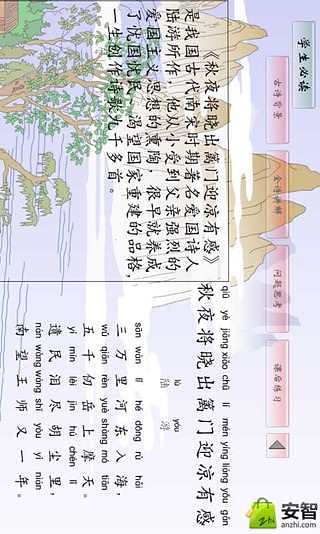 学生必读
古诗背景
全诗讲解
问题思考
课后练习
《秋夜将晓出篱门迎凉有感》
是我国古代南宋时期著名爱国诗人
陆游所作。他从小受到父亲强烈的
爱国主义思想的熏陶，很早就养成
了忧国忧民、渴望国家重建的品格，
一生创作诗歌九千多首。
qiū yè jiāng xiǎo chū lí mén yíng liáng yǒu gǎn
秋夜将晓出篱门迎凉有感
lù yóu
陆 游
sān wàn lǐ hé dōng rù hǎi
三万里河东入海，
wǔ qiān rèn yuè shàng mó tiān
五千仞岳上摩天。
yí mín lèi jìn hú chén lǐ
遗民泪尽胡尘里，
nán wàng wáng shī yòu yì nián
南望王师又一年。
安智
anzhi.com